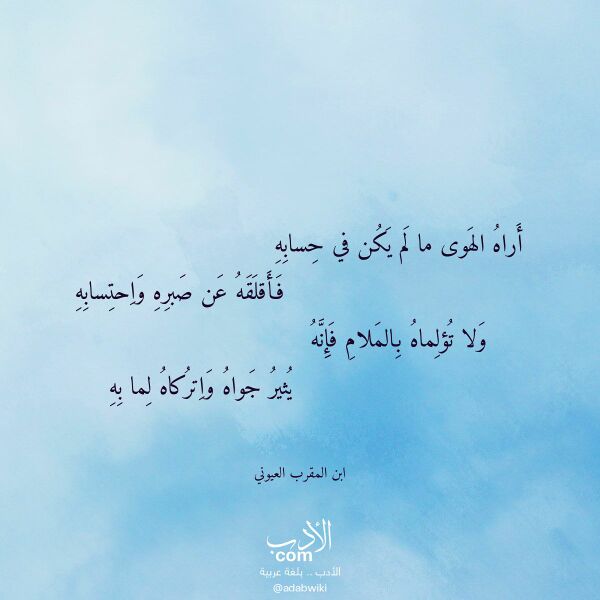 أَراهُ الهَوى ما لَم يَكُن في حِسابِهِ
فَأَقلَقَهُ عَن صَبرِهِ وَاِحتِسابِهِ
وَلا تُؤلِماهُ بِالمَلامِ فَإِنَّهُ
يُثيرُ جَواهُ وَاِترُكاهُ لِما بِهِ
ابن المقرب العيوني
الأدب
com
الأدب .. بلغة عربية
@adabwiki